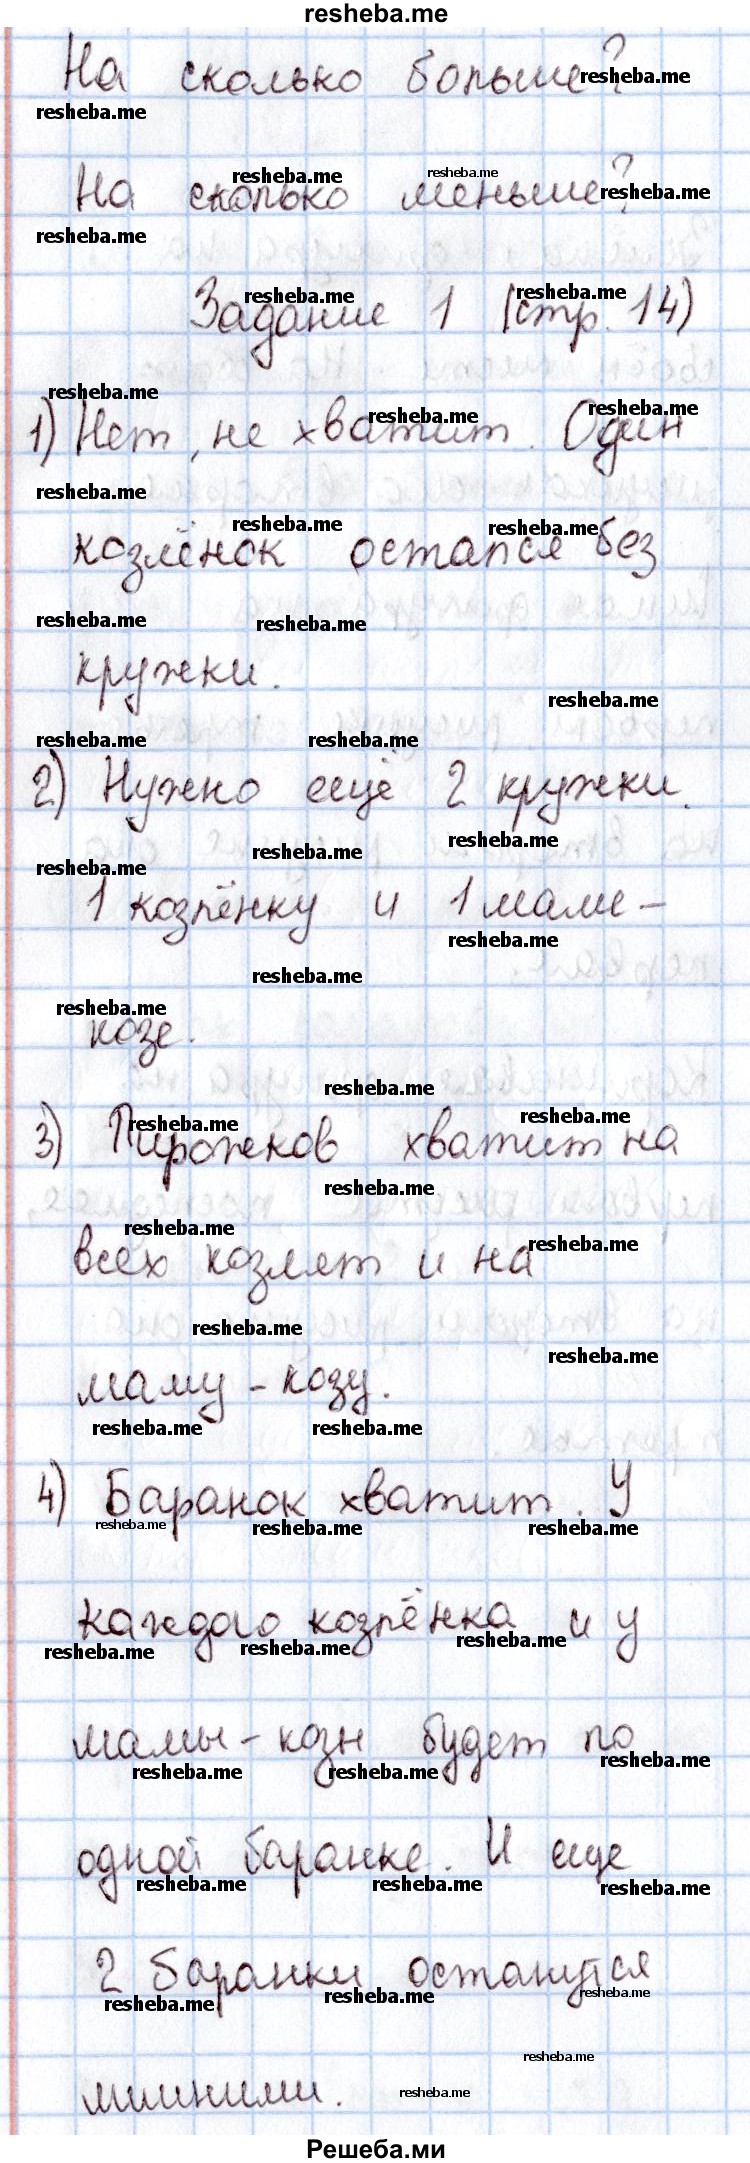 resheba.me
На сколько больше?
На сколько меньше?
Задание 1 (стр. 14)
1) Нет, не хватит. Один
козлёнок остался без
кружки.
2) Нужно ещё 2 кружки.
1 козлёнку и 1 маме -
козе.
3) Пирожков хватит на
всех козлят и на
маму - козу.
4) Баранок хватит. У
каждого козлёнка и у
мамы - козы будет по
одной баранке. И еще
2 баранки останутся
лишними.
Решеба.ми